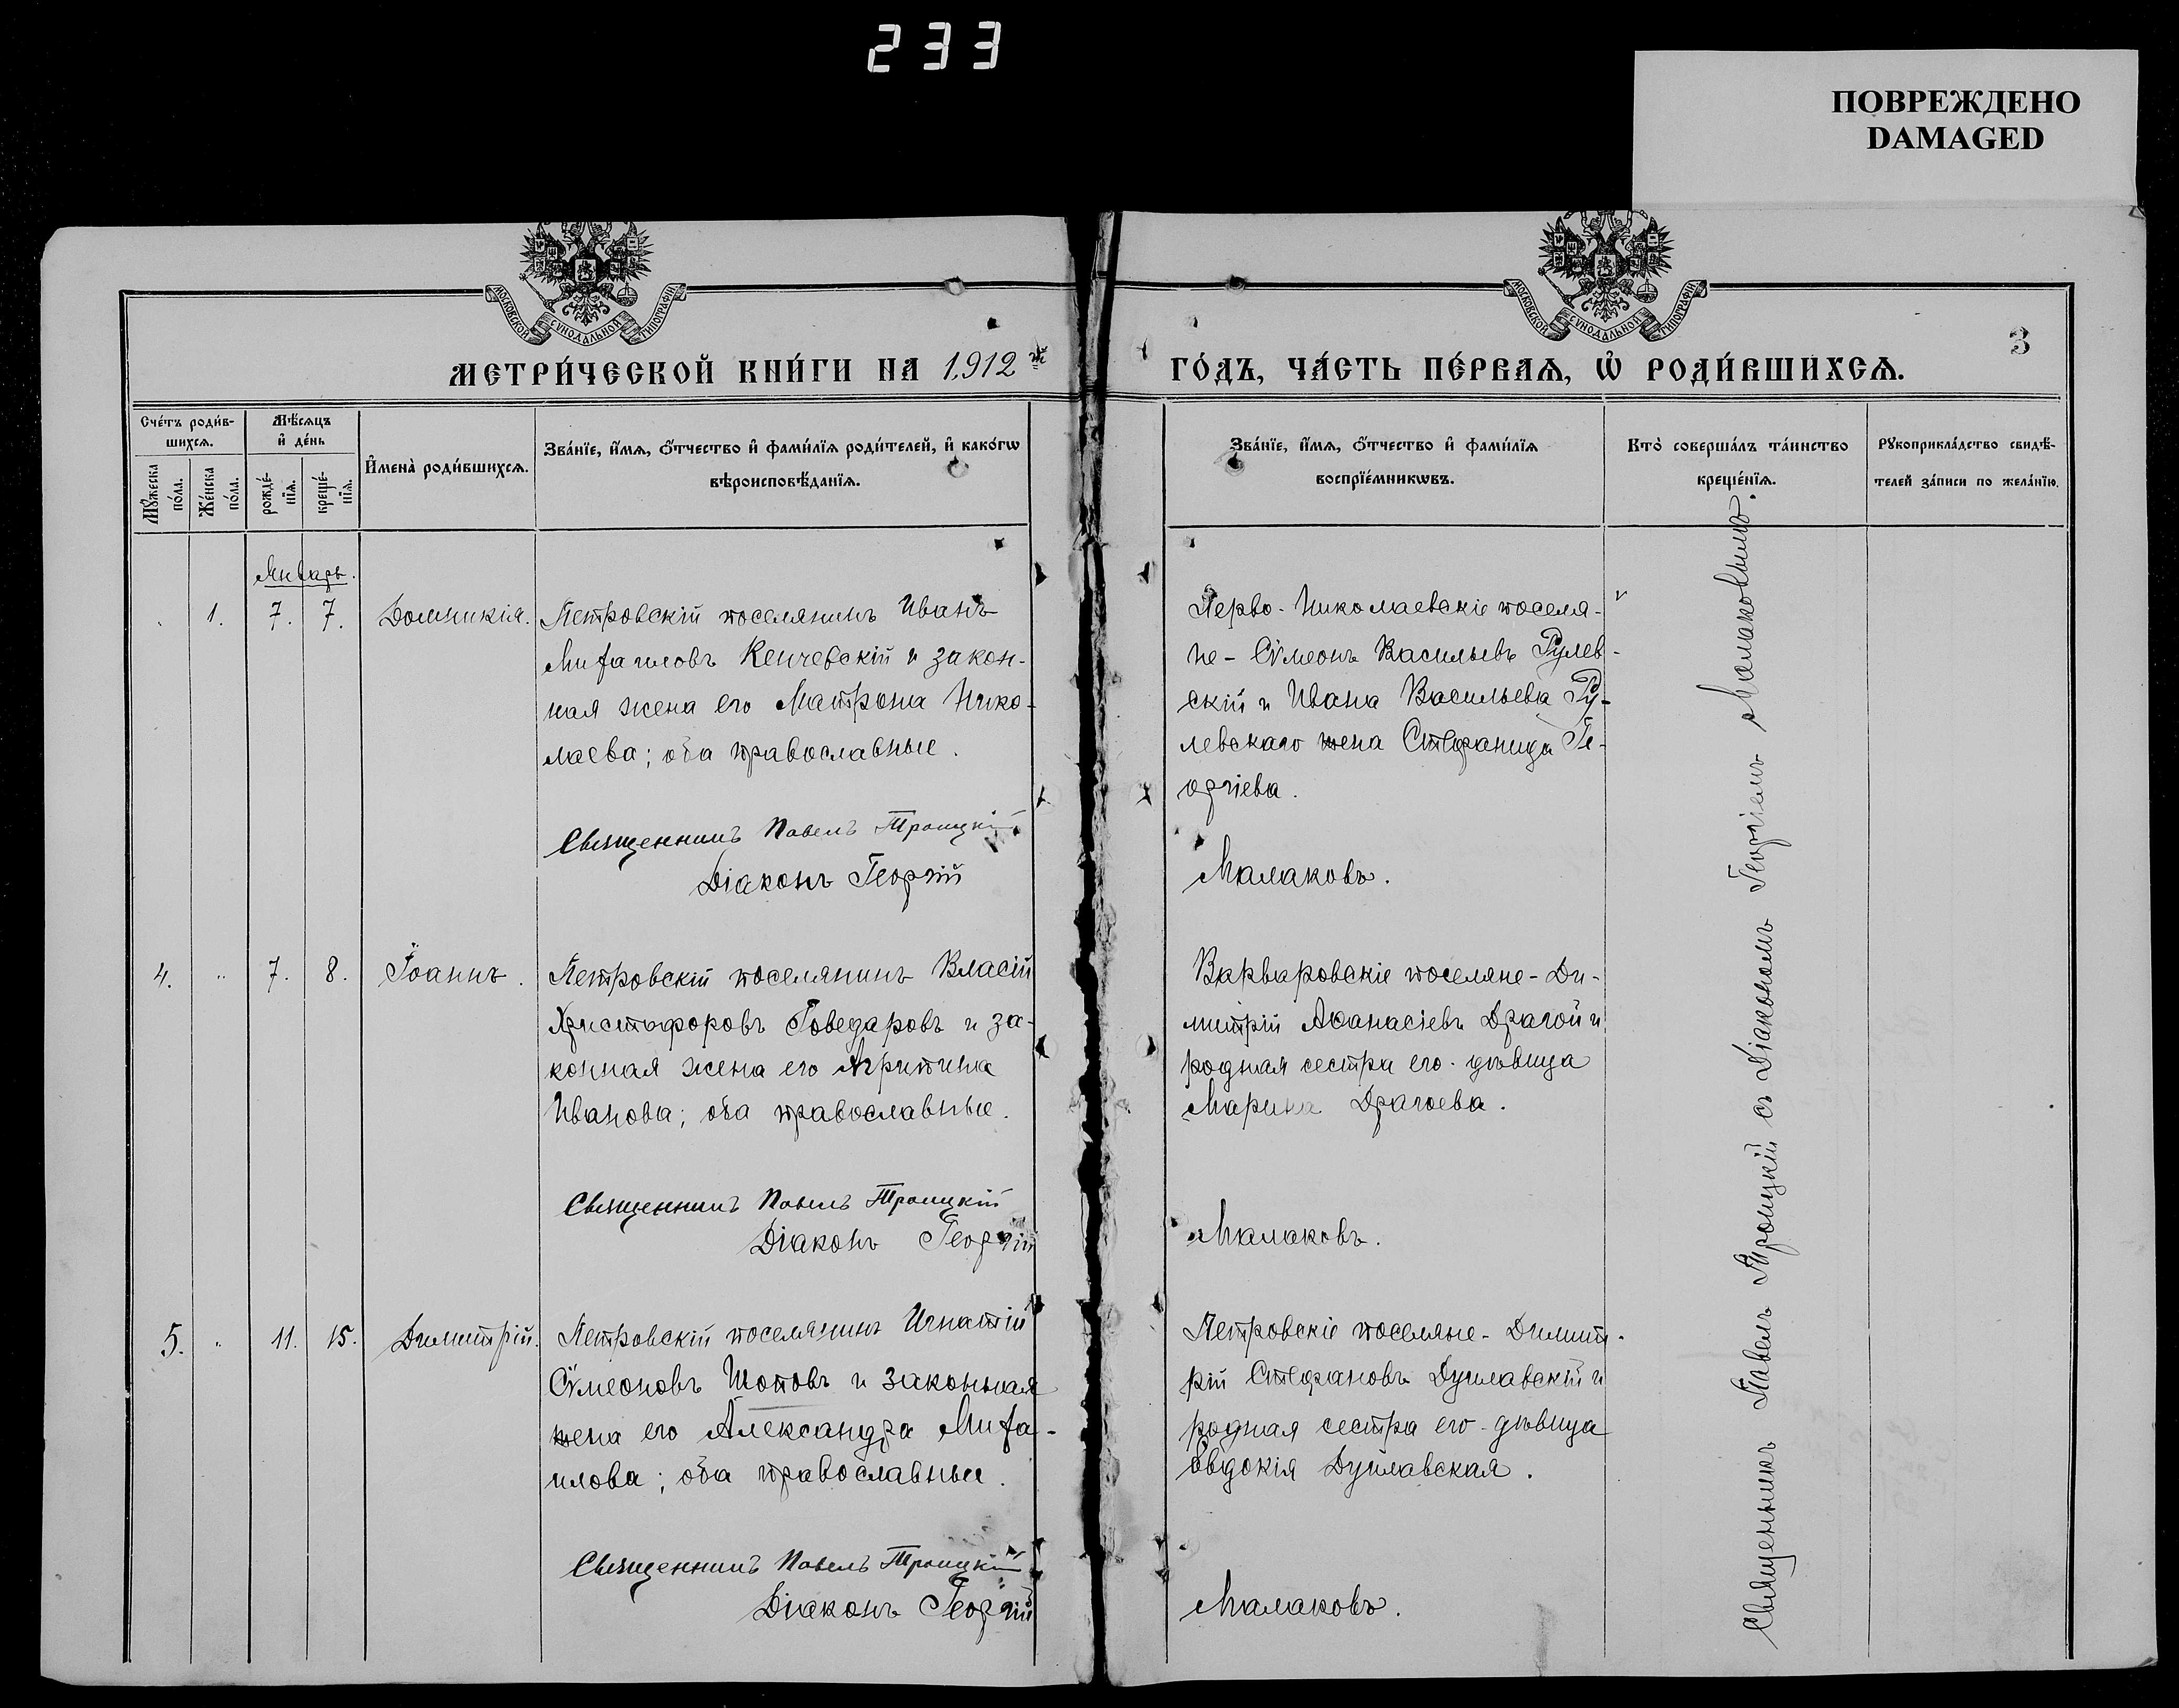 233
ПОВРЕЖДЕНО
DAMAGED
МОСКОВСКОЙ СУНОДАЛЬНОЙ ТИПОГРАФІИ
МОСКОВСКОЙ СУНОДАЛЬНОЙ ТИПОГРАФІИ
3
МЕТРИ́ЧЕСКОЙ КНИ́ГИ НА 1912й ГО́ДЪ, ЧА́СТЬ ПЕ́РВАѦ, Ѡ҆ РОДИ́ВШИХСѦ.
Сче́тъ роди́в-
шихсѧ.
Мѣ́сѧцъ
и҆ де́нь
Мꙋ́жеска
по́ла.
Же́нска
по́ла.
рожде́-
нїѧ.
креще́-
нїѧ.
И҆мена̀ роди́вшихсѧ.
Зва́нїе, и҆́мѧ, ѻ҆́тчество и҆ фами́лїѧ роди́телей, и҆ како́гѡ
вѣроисповѣ́данїѧ.
Зва́нїе, и҆́мѧ, ѻ҆́тчество и҆ фами́лїѧ
воспрїе́мникѡвъ.
Кто̀ соверша́лъ та́инство
креще́нїѧ.
Рꙋкоприкла́дство свидѣ́-
телей за́писи по жела́нїю.
Январь.
1. 7. 7. Домникія.
Петровскій поселянинъ Иванъ
Михаиловъ Кенчевскій и закон-
ная жена его Матрона Нико-
лаева; оба православные.
Священникъ Павелъ Троицкій
Діаконъ Георгій
Перво-Николаевскіе поселя-
не - Сѵмеонъ Васильевъ Гулев-
скій и Ивана Васильева Гу-
левскаго жена Стефанида Ге-
оргіева.
Малаковъ.
4. " 7. 8. Іоаннъ.
Петровскій поселянинъ Власій
Христофоровъ Говедаровъ и за-
конная жена его Агрипина
Иванова; оба православные.
Священникъ Павелъ Троицкій
Діаконъ Георгій
Варваровскіе поселяне - Ди-
митрій Аѳанасіевъ Драгой и
родная сестра его - дѣвица
Марина Драгоева.
Малаковъ.
5. " 11. 15. Димитрій.
Петровскій поселянинъ Игнатій
Сѵмеоновъ Шоповъ и законная
жена его Александра Миха-
илова; оба православные.
Священникъ Павелъ Троицкій
Діаконъ Георгій
Петровскіе поселяне - Димит-
рій Стефановъ Душлавскій и
родная сестра его - дѣвица
Евдокія Душлавская.
Малаковъ.
Священникъ Павелъ Троицкій съ Діакономъ Георгіемъ Малаковымъ.